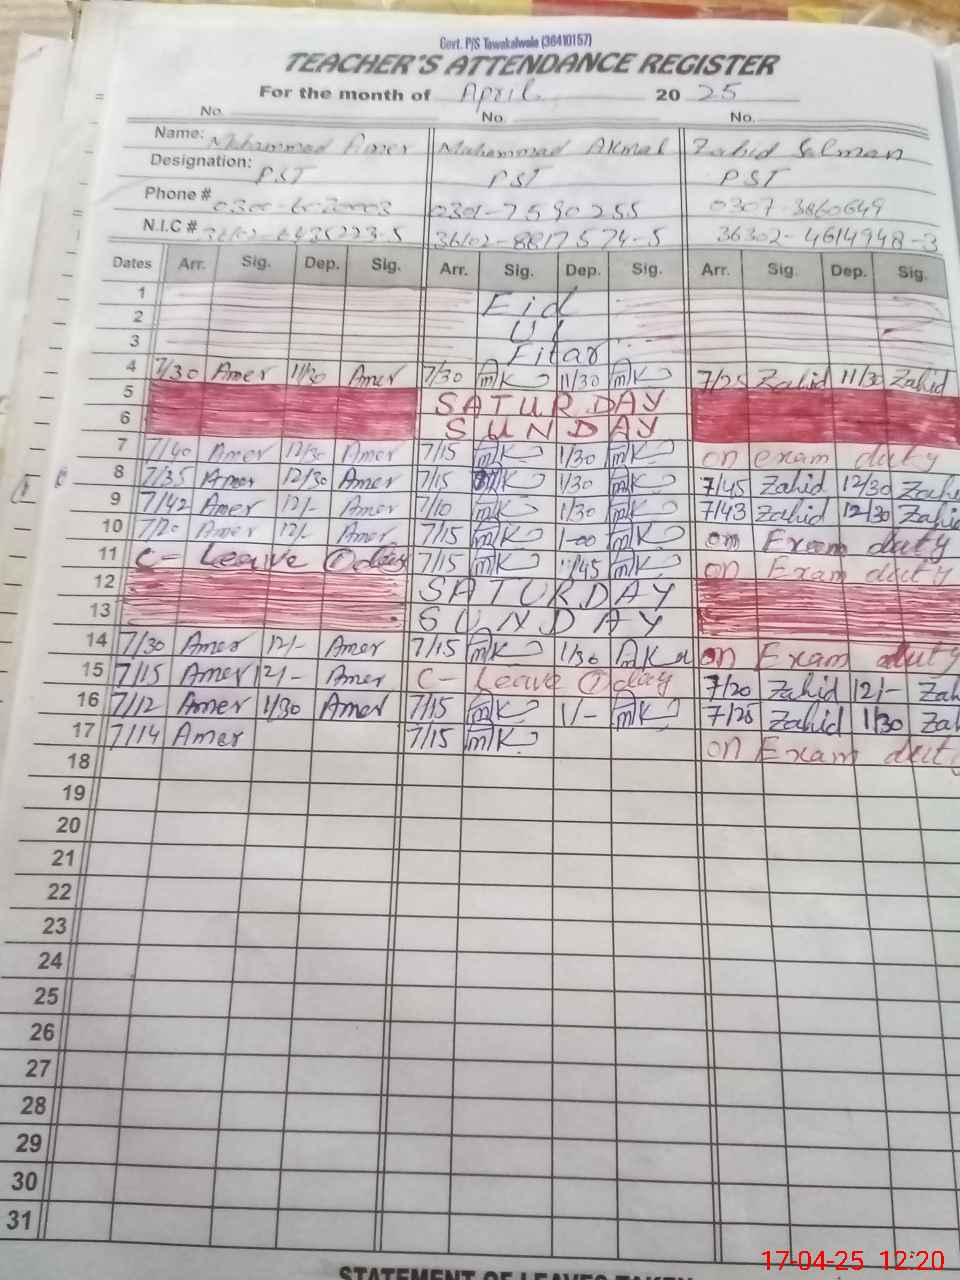 Govt. P/S Tawakalwala (36410157)
TEACHER'S ATTENDANCE REGISTER
For the month of April 20 25
No. No. No.
Name: Muhammad Amer Muhammad Akmal Zahid Salman
Designation: PST PST PST
Phone # 0301-7590255 0307-3860649
N.I.C # 36102-8817574-5 36302-4614948-3
Dates Arr. Sig. Dep. Sig. Arr. Sig. Dep. Sig. Arr. Sig. Dep. Sig.
1 Eid
2 Ul
3 Fitar
4 7/30 Amer 11/30 Amer 7/30 m/K 11/30 m/K 7/25 Zahid 11/30 Zahid
5 SATURDAY
6 SUNDAY
7 7/40 Amer 12/30 Amer 7/15 m/K 1/30 m/K on exam duty
8 7/35 Amer 12/30 Amer 7/15 m/K 1/30 m/K 7/45 Zahid 12/30 Zahi
9 7/42 Amer 12/- Amer 7/10 m/K 1/30 m/K 7/43 Zahid 12/30 Zahid
10 7/20 Amer 12/- Amer 7/15 m/K 1-00 m/K on Exam duty
11 C- Leave 1 day 7/15 m/K 11/45 m/K on Exam duty
12 SATURDAY
13 SUNDAY
14 7/30 Amer 12/- Amer 7/15 m/K 1/30 on Exam duty
15 7/15 Amer 12/- Amer C- Leave 1 day 7/20 Zahid 12/- Zah
16 7/12 Amer 1/30 Amer 7/15 m/K 1/- m/K 7/25 Zahid 1/30 Za
17 7/14 Amer 7/15 m/K on Exam duty
18
19
20
21
22
23
24
25
26
27
28
29
30
31
STATEMENT OF LEAVES TAKEN
17-04-25 12:20